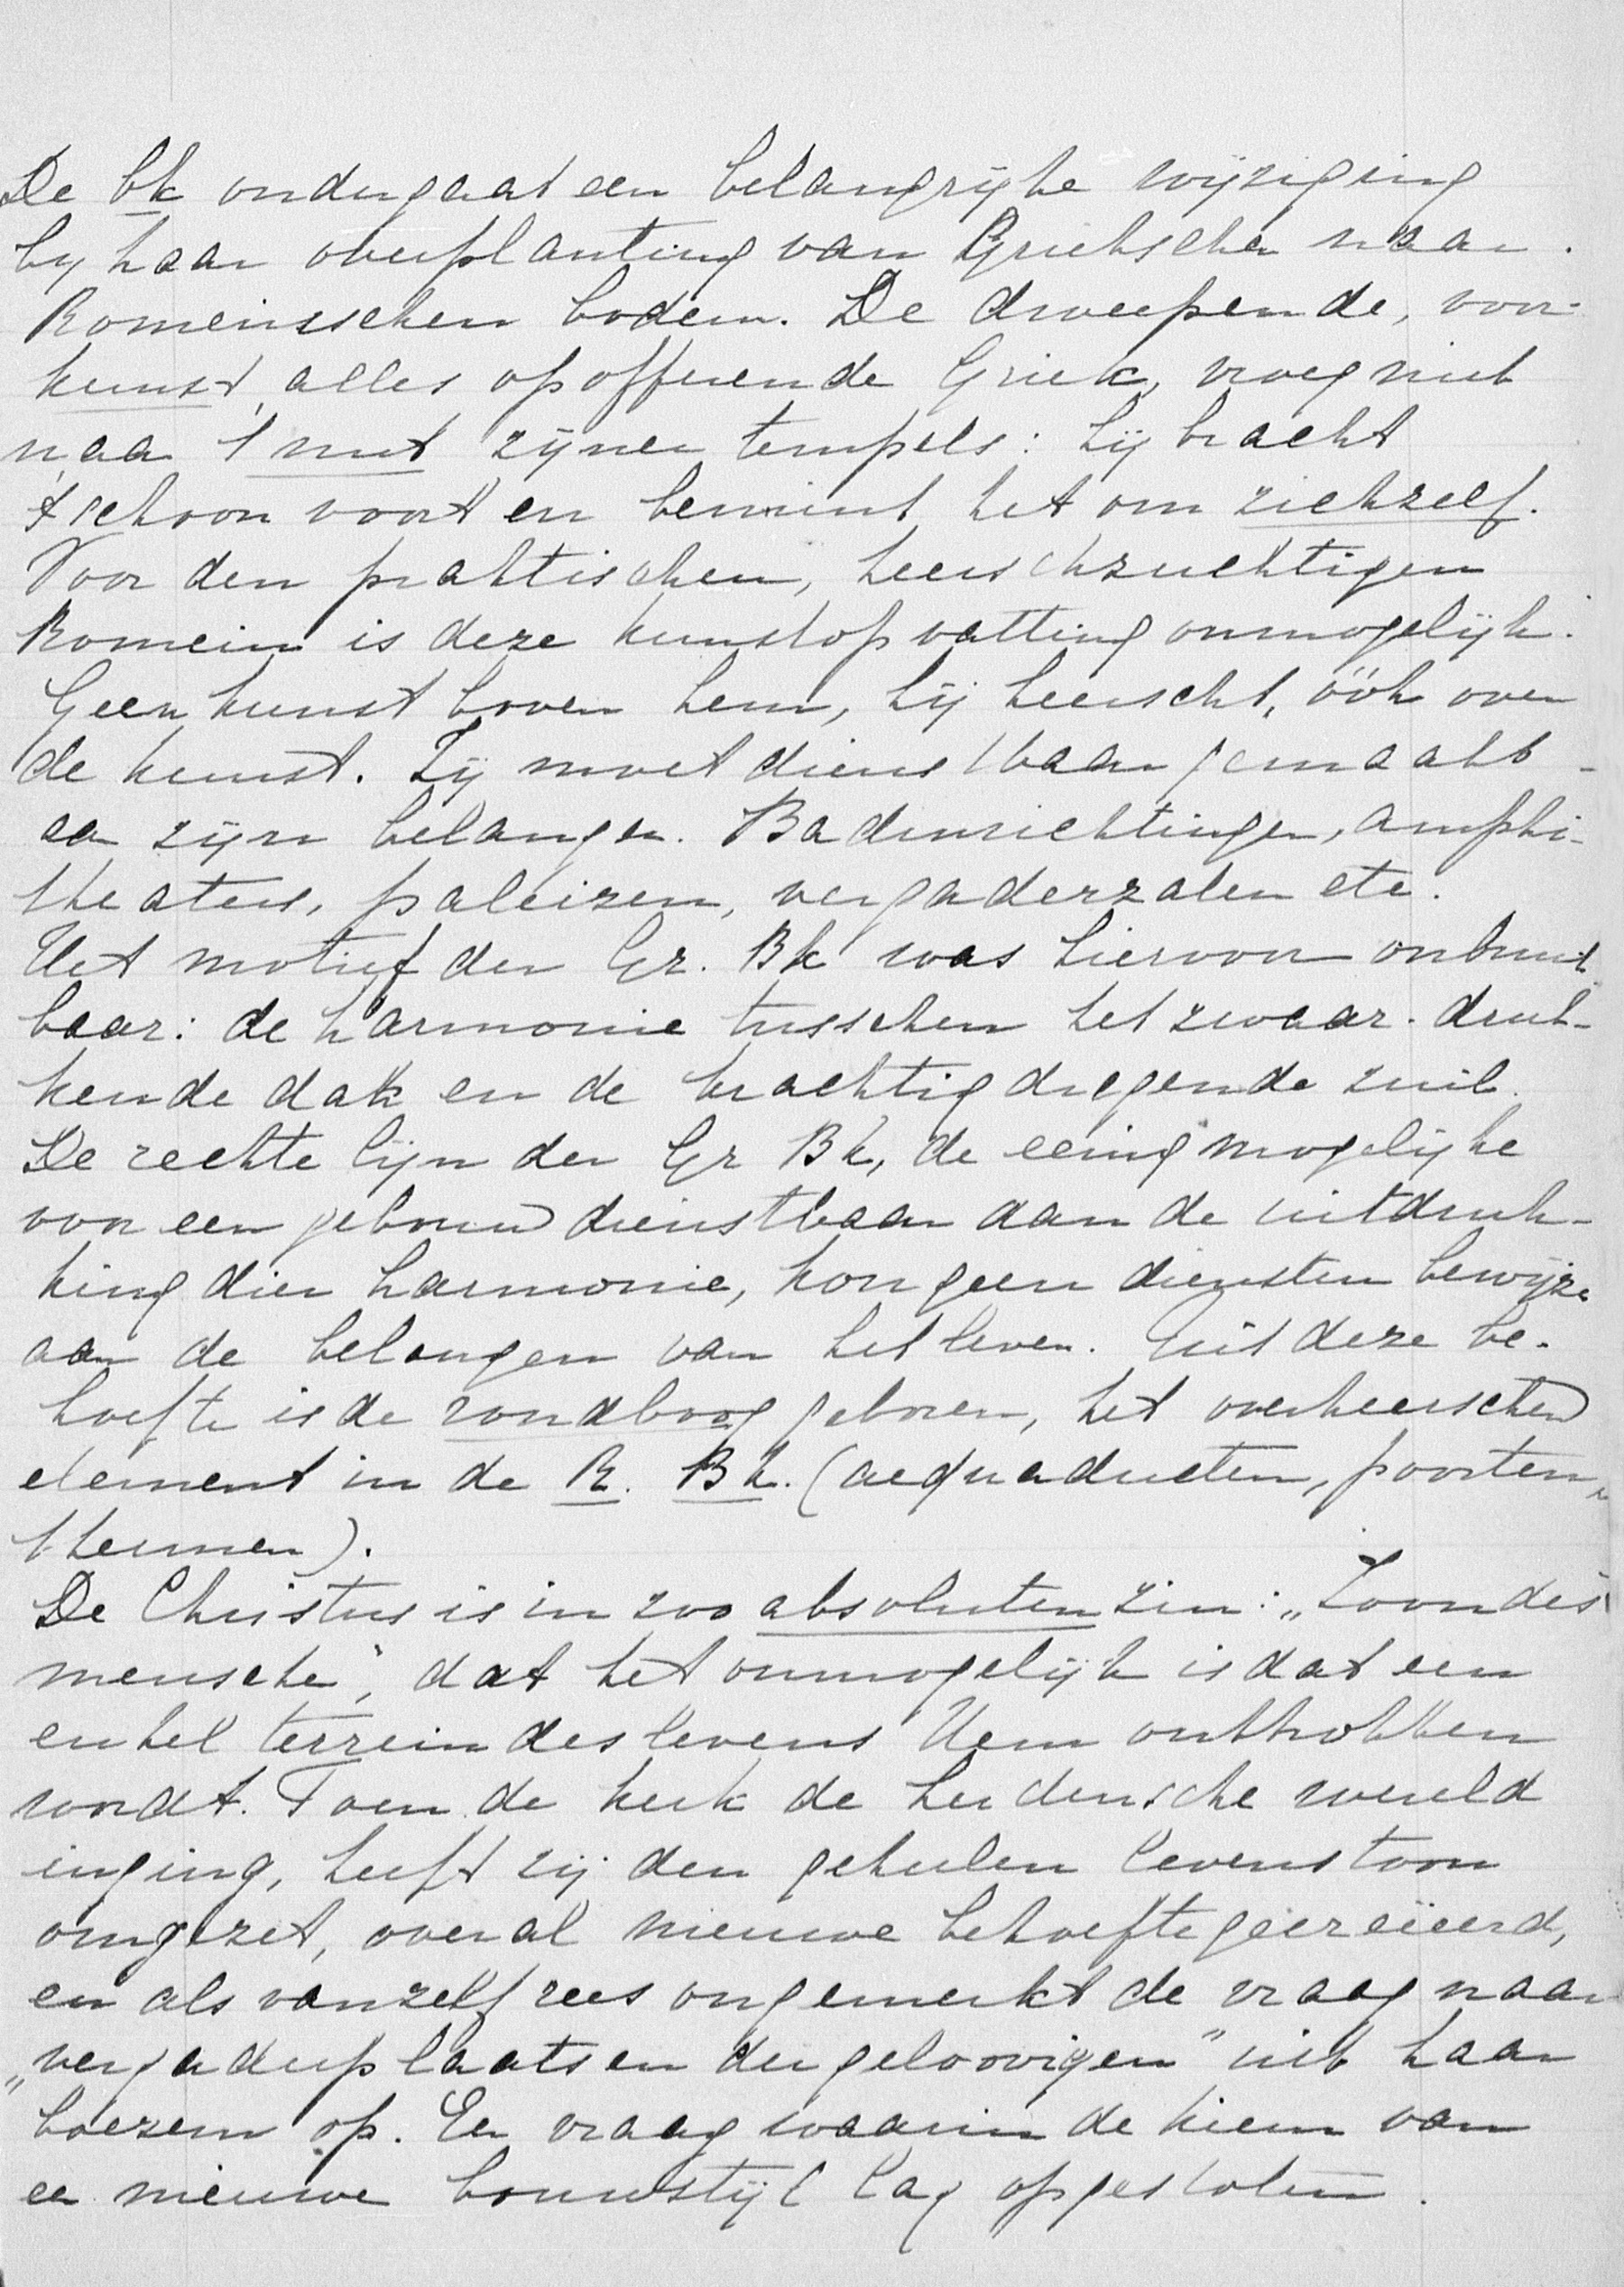 De bk ondergaat een belangrijke wijziging
by haar overplanting van Grieksche naar
Romeinsschen bodem. De dweepende, voor
kunst alles opofferende Griek, vroeg niet
naa 't nut zijner tempels: hij bracht
't schoon voort en bemint het om zichzelf.
Voor den praktischen, heerschzuchtigen
Romein is deze kunstopvatting onmogelijk.
Geen kunst boven hem, hij heerscht, óók over
de kunst. Zij moet dienstbaar gemaakt
aa zijn belangen. Badinrichtingen, amphi-
theaters, paleizen, vergaderzalen etc.
Het motief der Gr. Bk was hiervoor onbruik
baar: de harmonie tusschen het zwaar-druk-
kende dak en de krachtig dragende zuil.
De rechte lijn der Gr Bk, de eenig mogelijke
voor een gebouw dienstbaar aan de uitdruk-
king dier harmonie, kon geen diensten bewijze
aan de belangen van het leven. Uit deze be-
hoefte is de rondboog geboren, het overheerschen
element in de R. Bk. (aequaducten, poorten,
thermen).
De Christus is in zoo absoluten zin: „Zoon des
mensche", dat het onmogelijk is dat een
enkel terrein des levens Hem onttrokken
wordt. Toen de kerk de heidensche wereld
inging, heeft zij den geheelen levenstoon
omgezet, overal nieuwe behoefte gecreëeerd,
en als vanzelf rees ongemerkt de vraag naar
„vergaderplaatsen der geloovigen" uit haar
boezem op. Een vraag waarin de kiem van
ee nieuwe bouwstijl lag opgesloten.